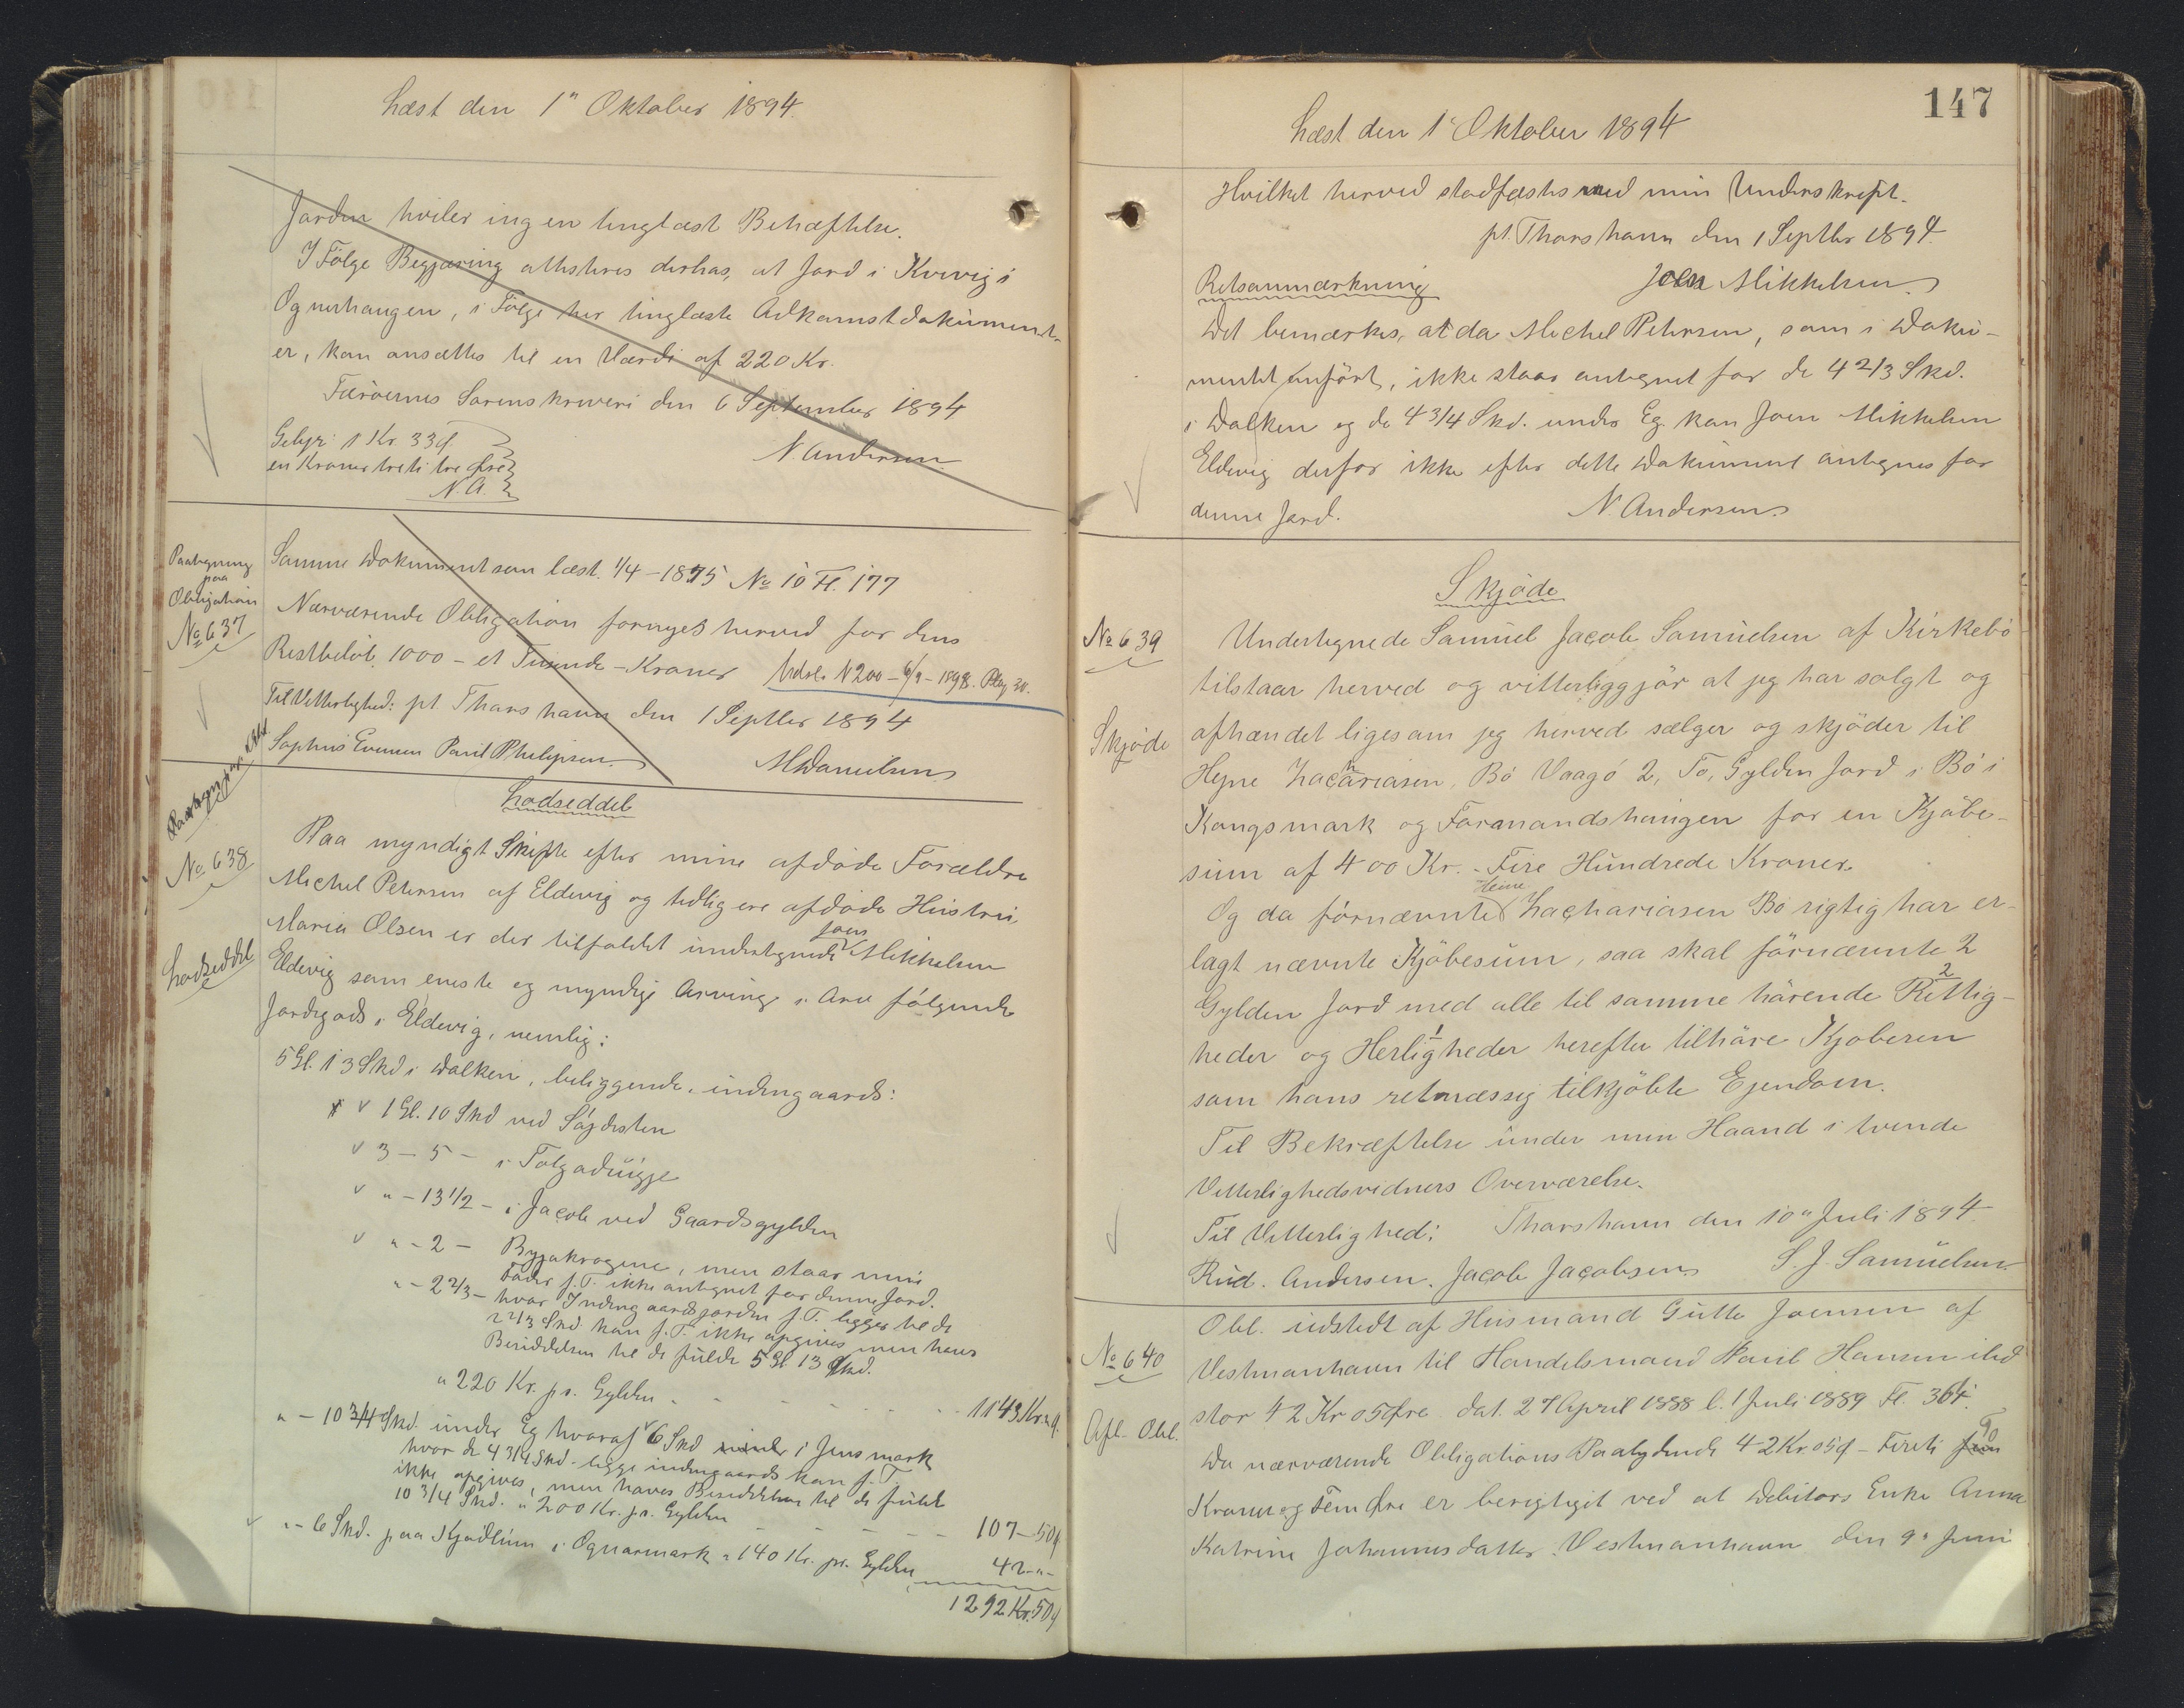 Læst den 1" Oktober 1894.
Jorden hviler ingen tinglæst Behæftelse.
I Følge Begjæring attesteres derhos, at Jord i Kvivig i
Ognerhaugen, i Følge her tinglæste Adkomstdokument-
er, kan ansættes til en Værdi af 220 Kr.
Færøernes Sorenskriveri den 6 September 1894
N. Andersen
Gebyr 1 Kr. 33 Ø
en Krone treti tre Øre
N.A.
Paategning
paa
Obligation
No 637
Samme Dokument som læst 1/4-1875 No 10 Fl. 177
Nærværende Obligation fornyes herved for dens
Restbeløb 1000 - et Tusende - Kroner
Til Vitterlighed: pt. Thorshavn den 1 Septbr 1894
Sophus Evensen Poul Philipsen. M Danielsen
Lodseddel
No 638
Lodseddel
Paa myndigt Skifte efter mine afdøde Forældre
Michel Petersen af Eldevig og tidligere afdøde Hustru
Maria Olsen er der tilfaldet undertegnede Joen Mikkelsen
Eldevig som eneste og myndige Arving i Arv følgende
Jordegods i Eldevig, nemlig:
5 Gl. 13 Skd i Dalken, beliggende indengaards:
1 Gl. 10 Skd ved Sáydesten
3 - 5 - i Tolgaduigje
" - 13 1/2 - i Jacob ved Gaardsgylden
" - 2 - Bygakrogene, men staar min
Fader f.T. ikke antegnet for denne Jord.
" - 2 2/3 - hvor Indengaardsjorden f.T. ligger til de
2 2/3 Skd. kan f.T. ikke opgives men haves
Besiddelsen til de fulde 5 Gl. 13 Skd.
" 220 Kr. pr. Gylden - - - - - - - - 1143 Kr. " Ø.
" - 10 3/4 Skd. under Eg hvoraf 6 Skd i Jensmark
hvor de 4 3/4 Skd. ligge indengaards kan f.T.
ikke opgives, men haves Besiddelsen til de fulde
10 3/4 Skd. " 200 Kr. pr. Gylden - - - - - - 107 - 50 Ø
" - 6 Skd. paa Kjødlum i Ognarmark " 140 Kr. pr. Gylden 42 - " -
1292 Kr. 50 Ø
147
Læst den 1" Oktober 1894
Hvilket herved stadfæstes med min Underskrift.
pt. Thorshavn den 1 Septbr 1894.
Joen Mikkelsen
Retsanmærkning
Det bemærkes, at da Michel Petersen, som i Doku-
mentet anført, ikke staar antegnet for de 4 2/3 Skd.
i Dalken og de 4 3/4 Skd. under Eg. kan Joen Mikkelsen
Eldevig derfor ikke efter dette Dokument antegnes for
denne Jord. N. Andersen
Skjøde
No 639
Skjøde
Undertegnede Samuel Jacob Samuelsen af Kirkebø
tilstaar herved og vitterliggjør at jeg har solgt og
afhændet ligesom jeg herved sælger og skjøder til
Hejne Zachariasen, Bø Vaagø 2, To, Gylden Jord i Bø i
Kongsmark og Formandshaugen for en Kjøbe-
sum af 400 Kr. - Fire Hundrede Kroner.
Og da førnævnte Heine Zachariasen Bø rigtig har er-
lagt nævnte Kjøbesum, saa skal førnævnte 2
Gylden Jord med alle til samme hørende 2 Rettig-
heder og 1 Herligheder herefter tilhøre Kjøberen
som hans retmæssig tilkjøbte Ejendom.
Til Bekræftelse under min Haand i tvende
Vitterlighedsvidners Overværelse.
Til Vitterlighed: Thorshavn den 10" Juli 1894
Rud. Andersen. Jacob Jacobsen S. J. Samuelsen
No 640
Afl. Obl.
Obl. udstedt af Husmand Gutte Joensen af
Vestmanhavn til Handelsmand Poul Hansen ibd
stor 42 Kr 05 Øre dat. 27 April 1888 l. 1 Juli 1889 Fl. 364.
Da nærværende Obligations Paalydende 42 Kr. 05 Ø - Firti To
Kroner og Fem Øre er berigtiget ved at Debitors Enke Anna
Katrine Johannesdatter Vestmanhavn den 9" Juni